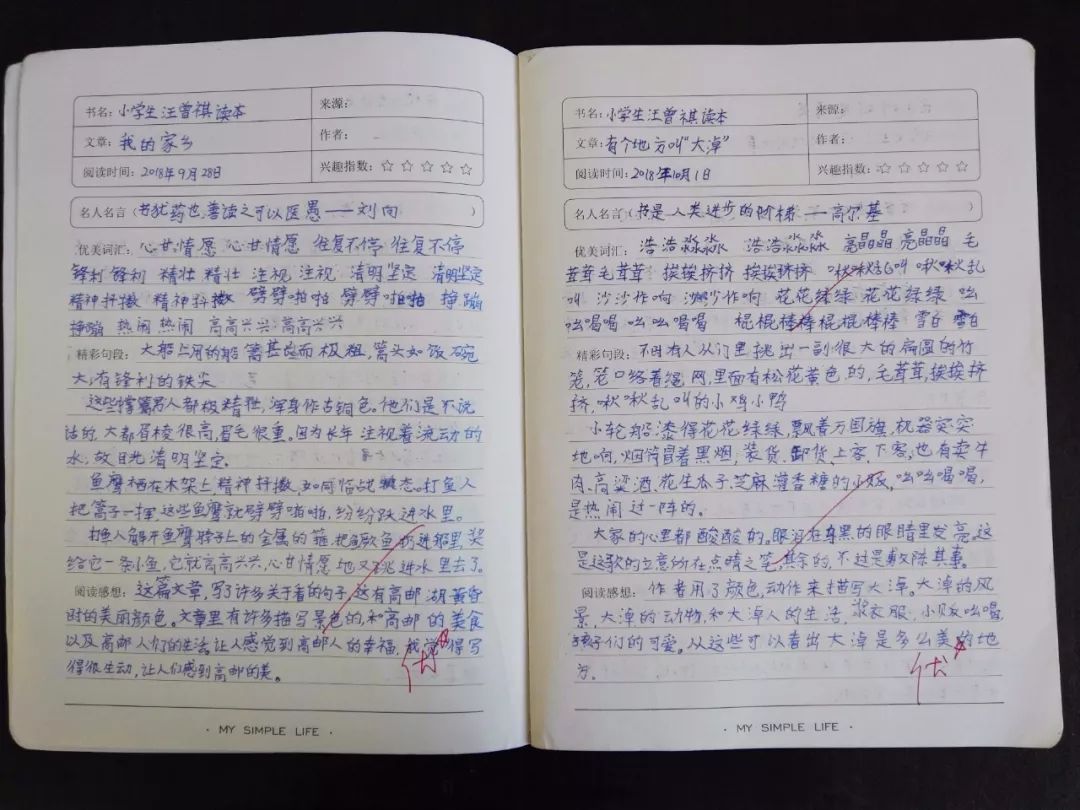 书名：小学生汪曾祺读本
来源：
文章：我的家乡
作者：
阅读时间：2018年9月28日
兴趣指数：☆ ☆ ☆ ☆ ☆
名人名言（书犹药也，善读之可以医愚——刘向）
优美词汇：心甘情愿 心甘情愿 往复不停 往复不停
锋利 锋利 精壮 精壮 注视 注视 清明坚定 清明坚定
精神抖擞 精神抖擞 劈劈啪啪 劈劈啪啪 挣蹦
挣蹦 热闹 热闹 高高兴兴 高高兴兴
精彩句段：大船上用的船篙甚长而极粗，篙头如饭碗
大，有锋利的铁尖
这些撑篙男人都极精壮，浑身作古铜色。他们是不说
话的，大都眉棱很高，眉毛很重。因为长年注视着流动的
水，故目光清明坚定。
鱼鹰栖在木架上，精神抖擞，如同临战状态。打鱼人
把篙子一挥，这些鱼鹰就劈劈啪啪，纷纷跃进水里。
鱼鹰脖子上的金属的箍，把鳜鱼扔进船里，奖
给它一条小鱼，它就高高兴兴，心甘情愿地又跳进水里去了。
阅读感想：这篇文章，写了许多关于看的句子，这有高邮湖黄昏
时的美丽颜色。文章里有许多描写景色的，和高邮的美食
以及高邮人们的生活，让人感觉到高邮人的幸福，我觉得写
得很生动，让人们感到高邮的美。
优
· MY SIMPLE LIFE ·
书名：小学生汪曾祺读本
来源：
文章：有个地方叫“大淖”
作者：
阅读时间：2018年10月1日
兴趣指数：☆ ☆ ☆ ☆ ☆
名人名言（书是人类进步的阶梯——高尔基）
优美词汇：浩浩淼淼 浩浩淼淼 亮晶晶 亮晶晶 毛
茸茸 毛茸茸 挨挨挤挤 挨挨挤挤 啾啾乱叫 啾啾乱
叫 沙沙作响 沙沙作响 花花绿绿 花花绿绿 吆
吆喝喝 吆吆喝喝 棍棍棒棒 棍棍棒棒 雪白 雪白
精彩句段：不时有人从门里挑出一副很大的扁圆的竹
笼，笼口络着绳网，里面有松花黄色的，毛茸茸，挨挨挤
挤，啾啾乱叫的小鸡小鸭
小轮船漆得花花绿绿，飘着万国旗，机器突突
地响，烟筒冒着黑烟，装货、卸货，上客、下客，也有卖牛
肉、高粱酒、花生瓜子、芝麻灌香糖的小贩，吆吆喝喝，
是热闹过一阵的。
大家的心里都酸酸的。眼泪在乌黑的眼睛里发亮。这
是这歌的立意所在点睛之笔，其余的，不过是敷陈其事。
阅读感想：作者用了颜色，动作来描写大淖。大淖的风
景，大淖的动物，和大淖人的生活，浆衣服，小贩吆喝，
孩子们的可爱。从这些可以看出大淖是多么美的地
方。
优
· MY SIMPLE LIFE ·